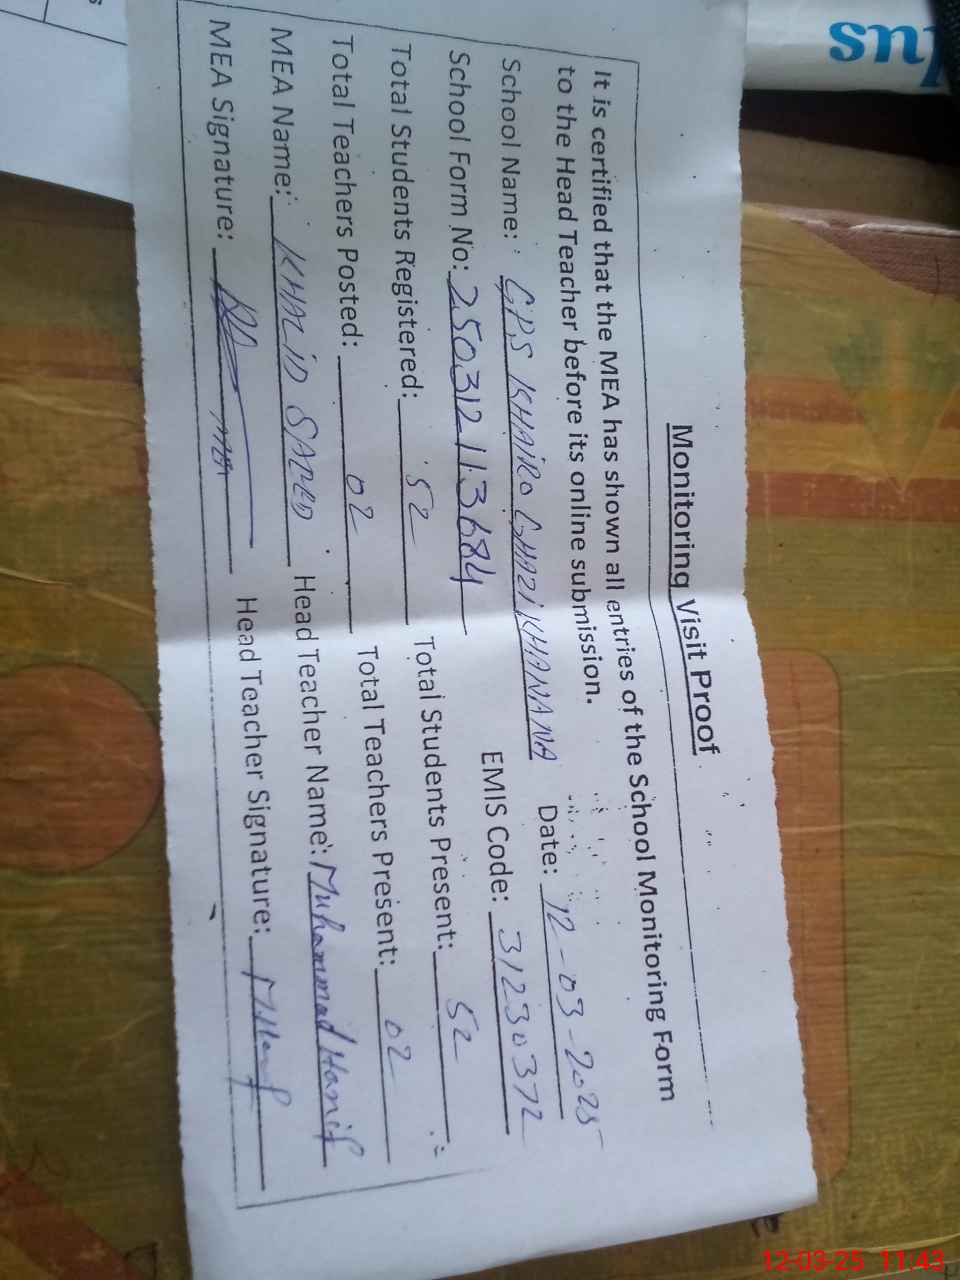 Monitoring Visit Proof
It is certified that the MEA has shown all entries of the School Monitoring Form
to the Head Teacher before its online submission.
School Name: GPS KHAIRO GHAZI KHANANA Date: 12-03-2025
School Form No: 25031211.3684 EMIS Code: 31230372
Total Students Registered: 52 Total Students Present: 52
Total Teachers Posted: 02 Total Teachers Present: 02
MEA Name: KHALID SAEED Head Teacher Name: Muhammad Hanif
MEA Signature: Head Teacher Signature: M.Hanif
12-03-25 11:43